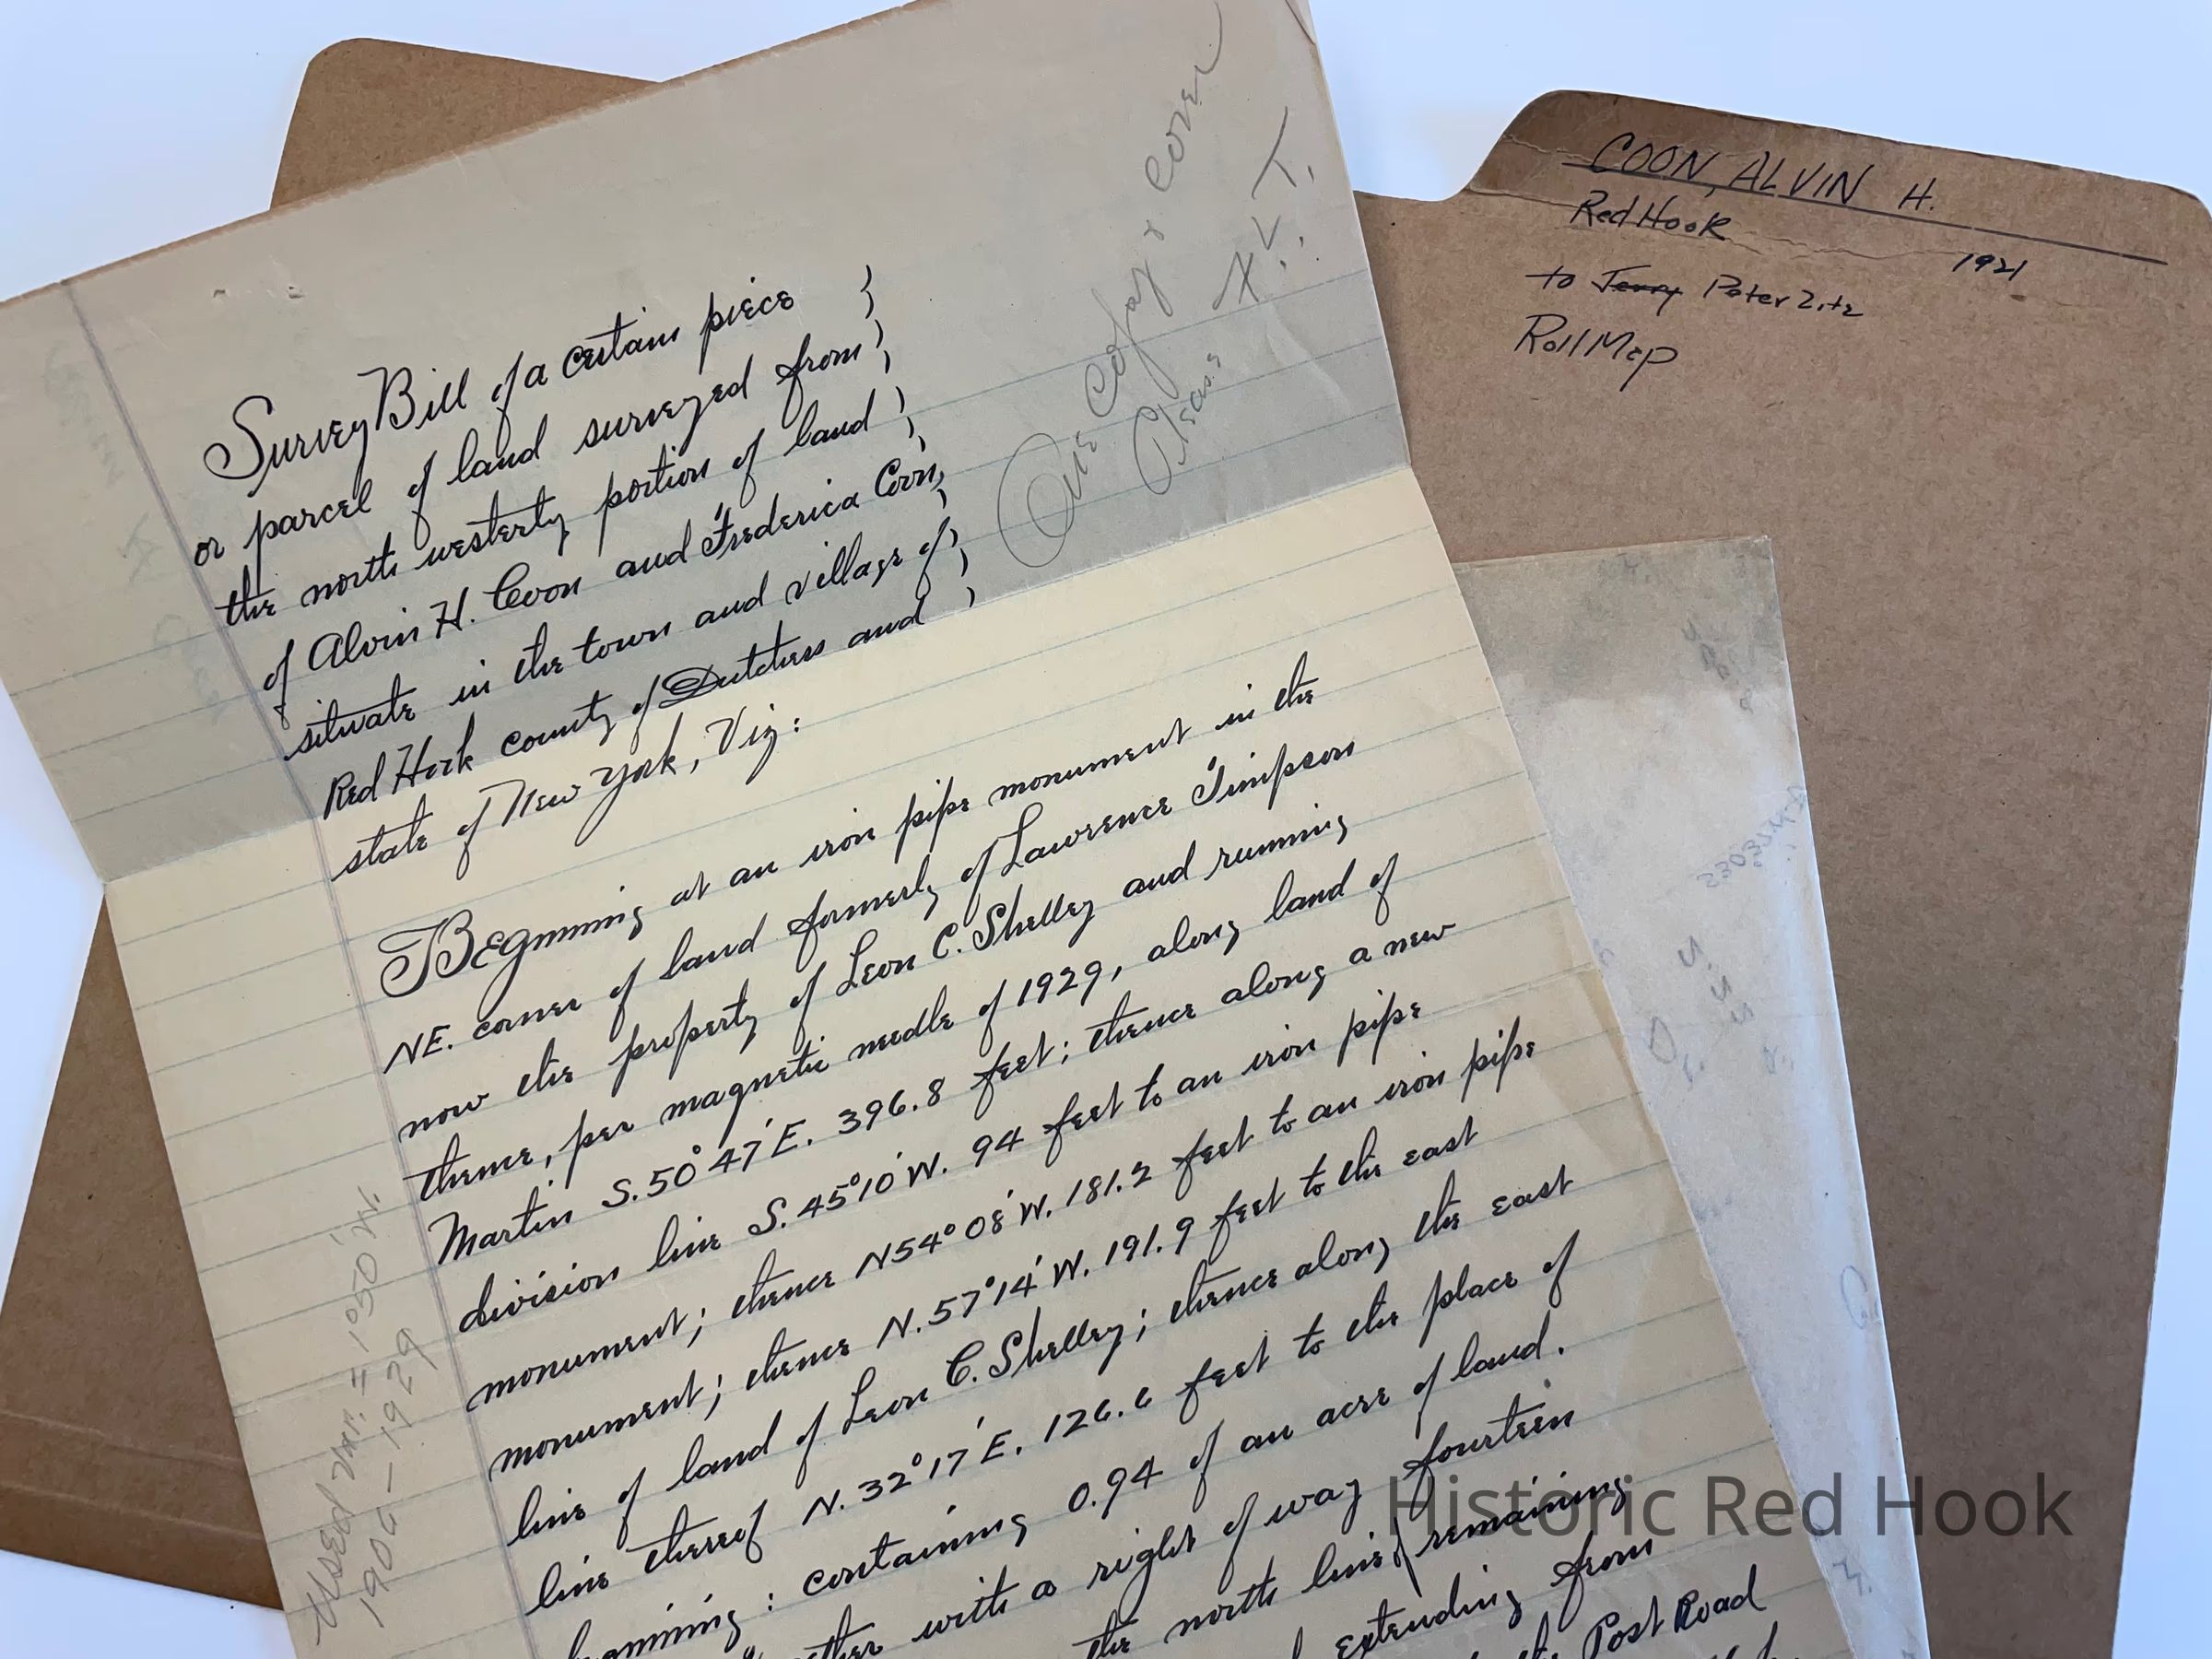 Survey Bill of a certain piece )
or parcel of land surveyed from )
the north westerly portion of land )
of Alvin H. Coon and Frederica Coon, )
situate in the town and village of )
Red Hook county of Dutchess and )
state of New York, Viz:
Beginning at an iron pipe monument in the
NE. corner of land formerly of Lawrence Timpson
now the property of Leon C. Shelley and running
thence, per magnetic needle of 1929, along land of
Martin S. 50° 47' E. 396.8 feet; thence along a new
division line S. 45° 10' W. 94 feet to an iron pipe
monument; thence N 54° 08' W. 181.2 feet to an iron pipe
monument; thence N. 57° 14' W. 191.9 feet to the east
line of land of Leon C. Shelley; thence along the east
line thereof N. 32° 17' E. 126.6 feet to the place of
beginning: containing 0.94 of an acre of land.
with a right of way fourteen
the north line of remaining
extending from
the Post Road
One Copy & Cover
Please
H. V. T.
Used Var. = 1° 50' W.
1906 - 1929
COON, ALVIN H.
Red Hook
1921
to Jerry Peter Litz
Roll Map
Historic Red Hook